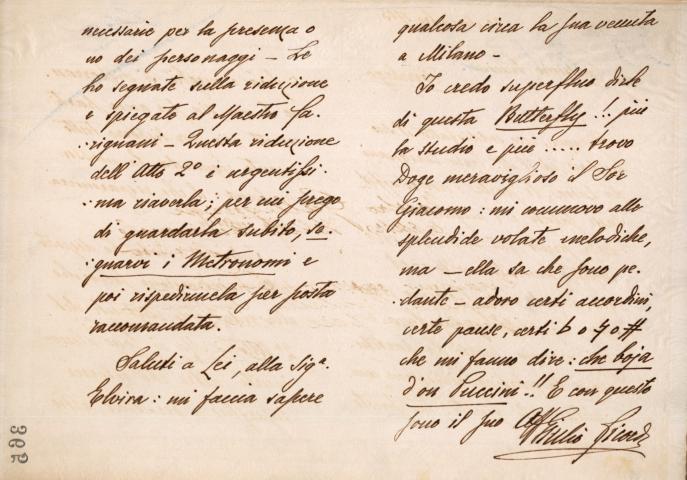 necessarie per la presenza o
no dei personaggi – Le
ho segnate sulla riduzione
e spiegate al Maestro Ca-
rignani – Questa riduzione
dell'Atto 2º è urgentissi-
ma riaverla; per cui prego
di guardarla subito, se-
gnarvi i Metronomi e
poi rispedirmela per posta
raccomandata.
Saluti a Lei, alla Sigª.
Elvira: mi faccia sapere
qualcosa circa la sua venuta
a Milano –
Io credo superfluo dirle
di questa Butterfly!.. più
la studio e più ..... trovo
Doge meraviglioso il Sor
Giacomo: mi commuovo alle
splendide volate melodiche,
ma – ella sa che sono pe-
dante – adoro certi accordini,
certe pause, certi ♭ o ♮ o #
che mi fanno dire: che boja
d'on Puccini!! E con questo
sono il suo Aff
Giulio Ricordi
365